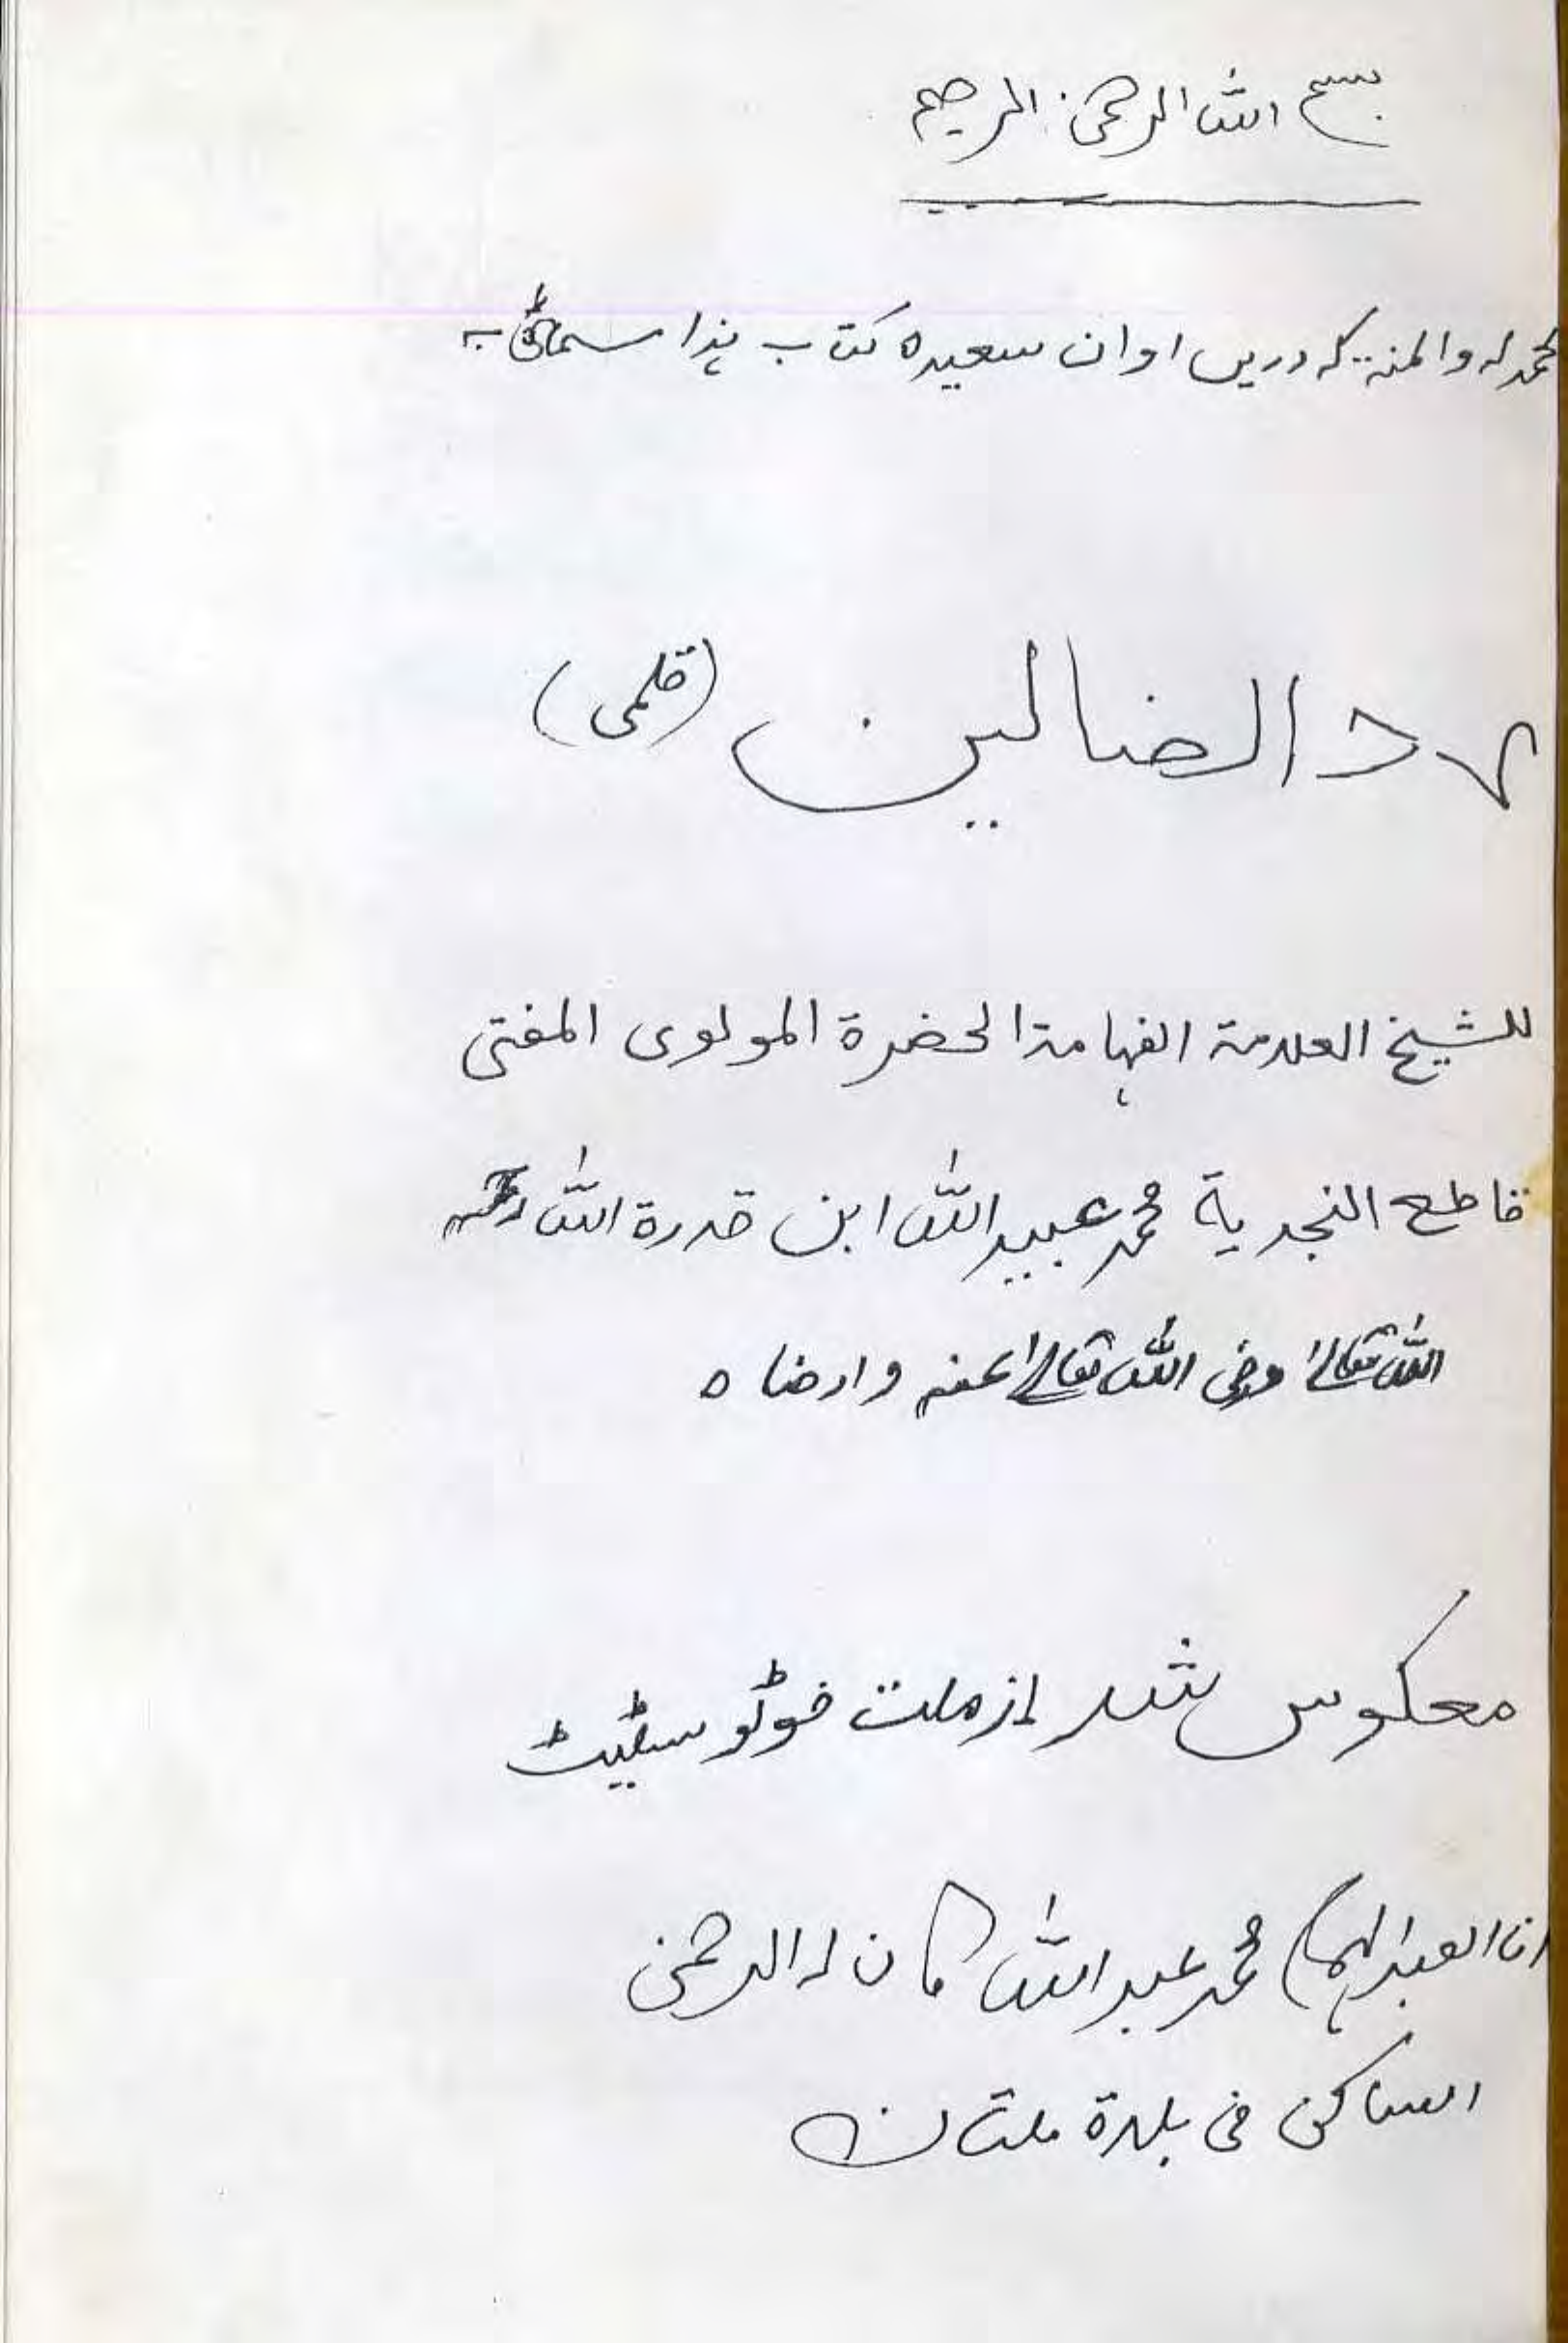 بسم اللہ الرحمن الرحیم
لحمد لہ والمنۃ کہ دریں اوان سعیدہ کتاب ہذا بہ
رد الضالین (قلمی)
للشیخ العلامۃ الفہامۃ الحضرۃ المولوی المفتی
قاطع النجدیۃ محمد عبید اللہ ابن قدرۃ اللہ رحمہ
اللہ تعالیٰ ورضی اللہ تعالیٰ عنہ وارضاہ
معکوس شد از ملت فوٹو سٹیٹ
انا العبد محمد عبد اللہ کان لہ الرحمن
الساکن فی بلدۃ ملتان